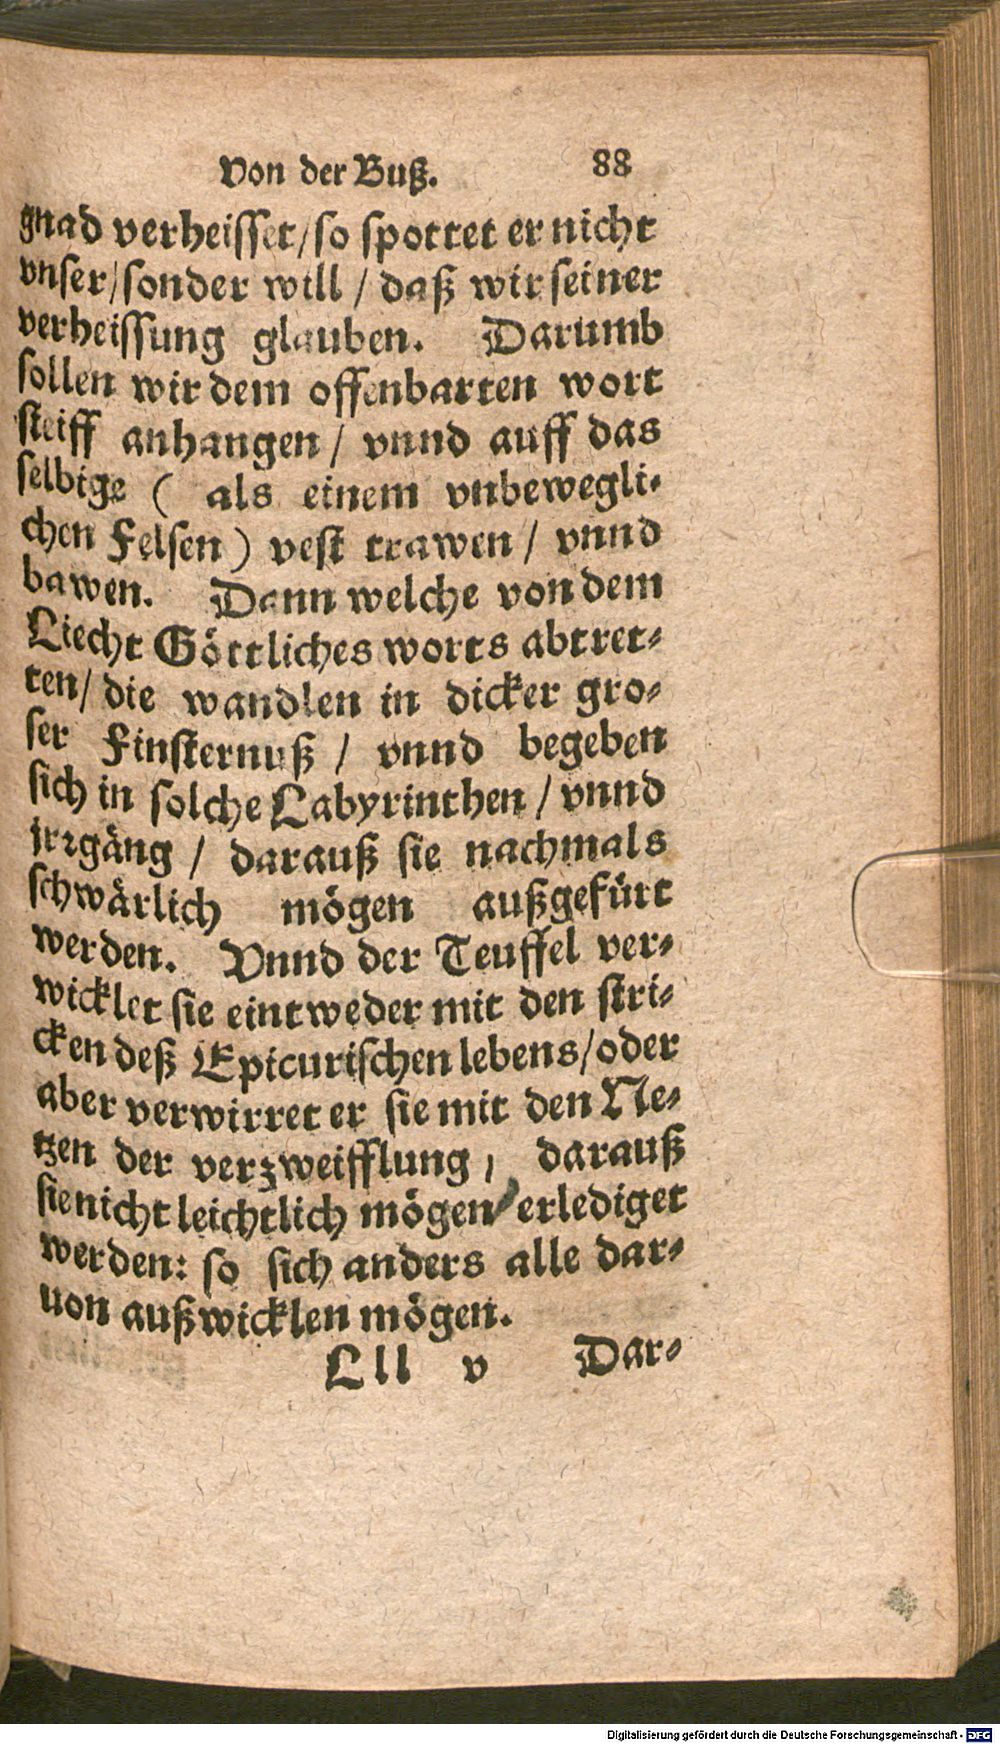 Von der Buß. 88
gnad verheisset / so spottet er nicht
vnser / sonder will / daß wir seiner
verheissung glauben. Darumb
sollen wir dem offenbarten wort
steiff anhangen / vnnd auff das
selbige ( als einem vnbewegli-
chen Felsen ) vest trawen / vnnd
bawen. Dann welche von dem
Liecht Göttliches worts abtret-
ten / die wandlen in dicker gro-
ser Finsternuß / vnnd begeben
sich in solche Labyrinthen / vnnd
jrrgäng / darauß sie nachmals
schwärlich mögen außgefürt
werden. Vnnd der Teuffel ver-
wicklet sie eintweder mit den stri-
cken deß Epicurischen lebens / oder
aber verwirret er sie mit den Ne-
tzen der verzweifflung / darauß
sie nicht leichtlich mögen erlediget
werden: so sich anders alle dar-
uon außwicklen mögen.
Lll v Dar-
Digitalisierung gefördert durch die Deutsche Forschungsgemeinschaft - DFG